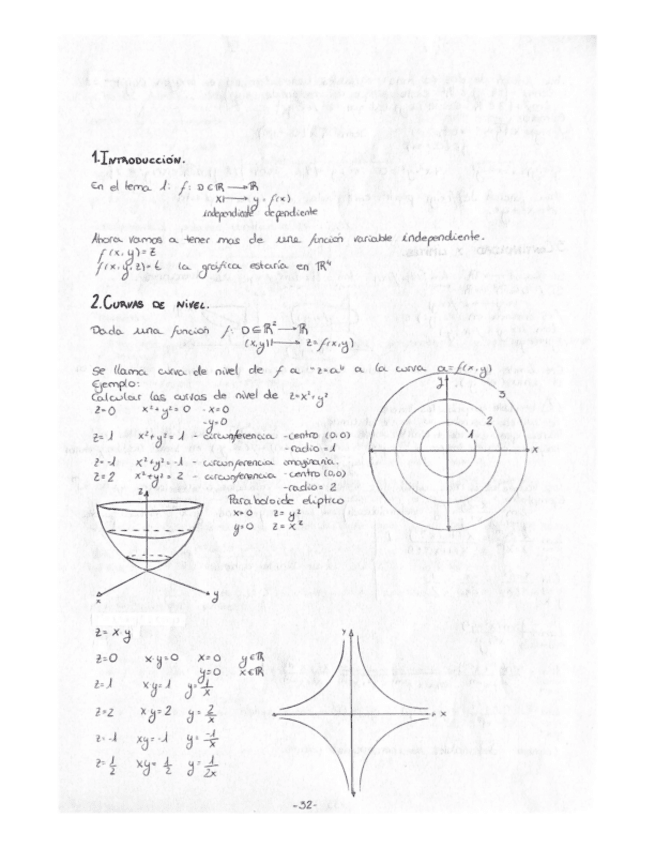 1. INTRODUCCIÓN.
En el tema 1: f: D ⊂ ℝ → ℝ
x ↦ y = f(x)
independiente dependiente
Ahora vamos a tener mas de una función variable independiente.
f(x,y)=z
f(x,y,z)=t la gráfica estaría en ℝ⁴
2. CURVAS DE NIVEL.
Dada una función f: D ⊆ ℝ² → ℝ
(x,y) ↦ z=f(x,y)
Se llama curva de nivel de f a "z=a" a la curva a=f(x,y)
Ejemplo:
Calcular las curvas de nivel de z=x²+y²
z=0 x²+y²=0 -x=0
-y=0
z=1 x²+y²=1 - circunferencia -centro (0,0)
-radio=1
z=-1 x²+y²=-1 - circunferencia imaginaria.
z=2 x²+y²=2 - circunferencia -centro (0,0)
-radio=2
y
3
2
1
x
Paraboloide elíptico
x=0 z=y²
y=0 z=x²
z
x
y
z=x·y
z=0 xy=0 x=0 y∈ℝ
y=0 x∈ℝ
z=1 xy=1 y=1/x
z=2 xy=2 y=2/x
z=-1 xy=-1 y=-1/x
z=1/2 xy=1/2 y=1/2x
Y
X
-52-